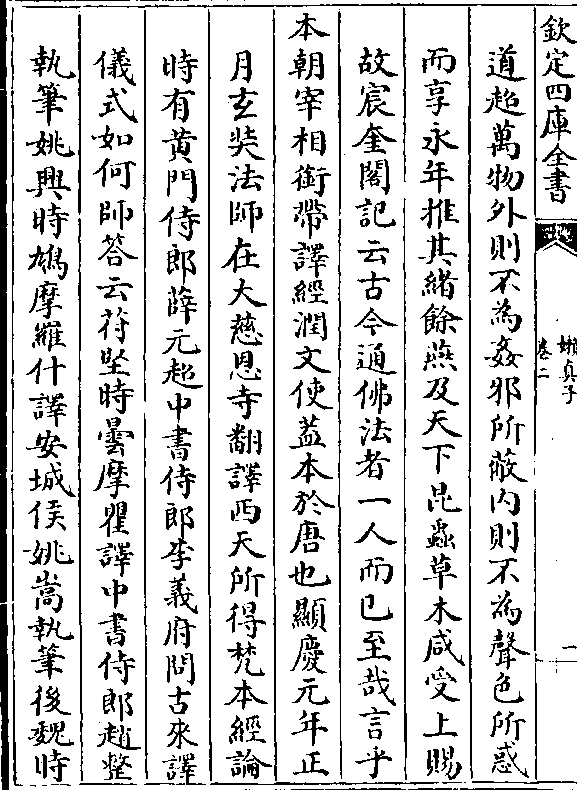 欽定四庫全書
嬾真子
卷二
一
道超萬物外則不為姦邪所蔽内則不為聲色所惑
而享永年推其緒餘燕及天下昆蟲草木咸受上賜
故宸奎閣記云古今通佛法者一人而已至哉言乎
本朝宰相銜帶譯經潤文使葢本於唐也顯慶元年正
月玄奘法師在大慈恩寺翻譯西天所得梵本經論
時有黄門侍郎薛元超中書侍郎李義府問古來譯
儀式如何師答云苻堅時曇摩瞿譯中書侍郎趙整
執筆姚興時鳩摩羅什譯安城侯姚嵩執筆後魏時